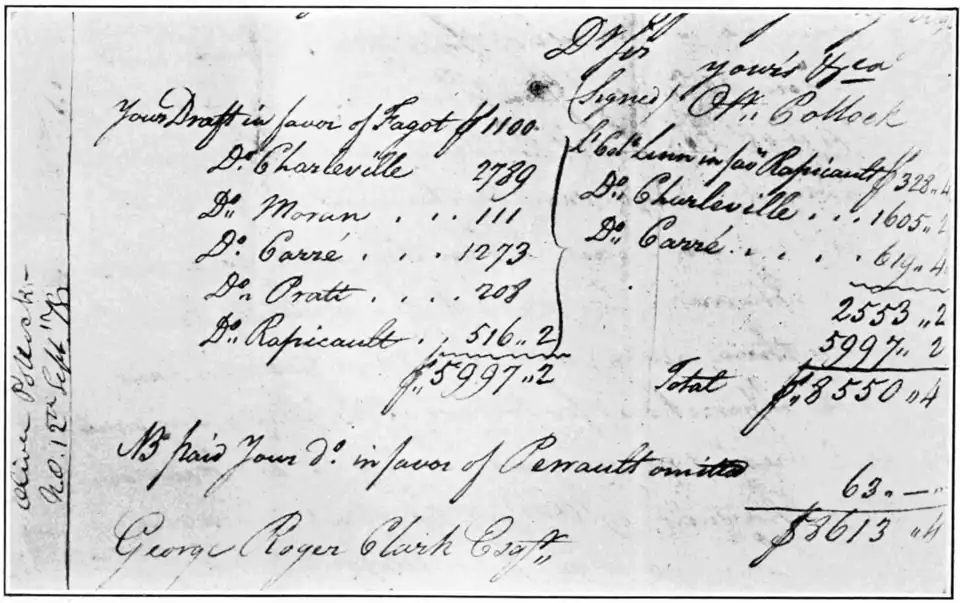 Dr Sir
yours &ca
(Signed) Or. Pollock
Your Draft in favor of Fagot $1100
Do. Charleville 2789
Do. Moran . . . 111
Do. Carré . . . 1273
Do. Pratt . . . . 208
Do. Rapicault . 516,, 2
$5997,, 2
Lt Colo Linn in favr Rapicault $328,, 4
Do. Charleville . . . 1605,, 2
Do. Carré . . . . . 619,, 4
2553,, 2
5997,, 2
Total $8550,, 4
NB paid Your do. in favor of Perrault omitted
63,, —
$8613,, 4
George Roger Clark Esqr,,
Oliver Pollock
No. 12th Sept